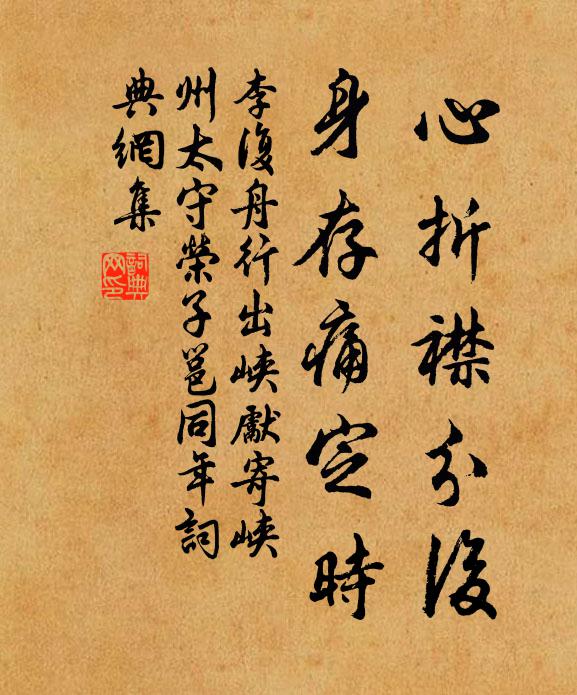 心折襟分後
身存痛定時
李復舟行出峽獻寄峽
州太守榮子邕同年詞
典網集
詞典網印